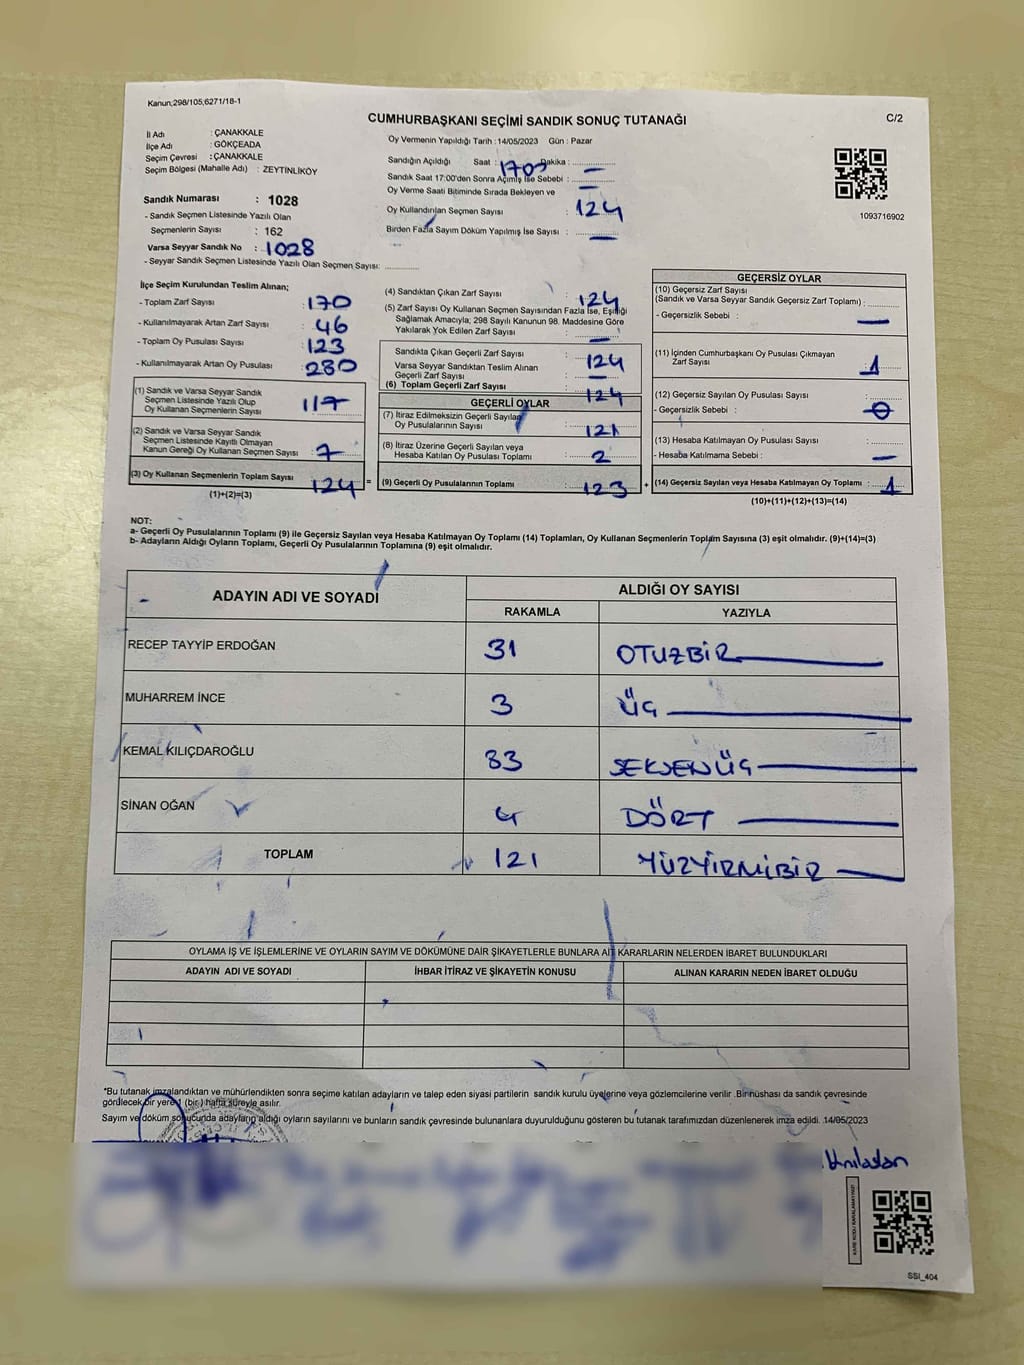 Kanun;298/105,6271/18-1
CUMHURBAŞKANI SEÇİMİ SANDIK SONUÇ TUTANAĞI
C/2
İl Adı : ÇANAKKALE
İlçe Adı : GÖKÇEADA
Seçim Çevresi : ÇANAKKALE
Seçim Bölgesi (Mahalle Adı) : ZEYTİNLİKÖY
Sandık Numarası : 1028
- Sandık Seçmen Listesinde Yazılı Olan
Seçmenlerin Sayısı : 162
Varsa Seyyar Sandık No : 1028
- Seyyar Sandık Seçmen Listesinde Yazılı Olan Seçmen Sayısı: ..............
Oy Vermenin Yapıldığı Tarih : 14/05/2023 Gün : Pazar
Sandığın Açıldığı Saat : 1705 Dakika : ..............
Sandık Saat 17:00'den Sonra Açılmış İse Sebebi : —
Oy Verme Saati Bitiminde Sırada Bekleyen ve
Oy Kullandırılan Seçmen Sayısı : 124
Birden Fazla Sayım Döküm Yapılmış İse Sayısı : —
1093716902
İlçe Seçim Kurulundan Teslim Alınan;
- Toplam Zarf Sayısı : 170
- Kullanılmayarak Artan Zarf Sayısı : 46
- Toplam Oy Pusulası Sayısı : 123
- Kullanılmayarak Artan Oy Pusulası : 280
(1) Sandık ve Varsa Seyyar Sandık
Seçmen Listesinde Yazılı Olup
Oy Kullanan Seçmenlerin Sayısı : 117
(2) Sandık ve Varsa Seyyar Sandık
Seçmen Listesinde Kayıtlı Olmayan
Kanun Gereği Oy Kullanan Seçmen Sayısı : 7
(3) Oy Kullanan Seçmenlerin Toplam Sayısı : 124 =
(1)+(2)=(3)
(4) Sandıktan Çıkan Zarf Sayısı : 124
(5) Zarf Sayısı Oy Kullanan Seçmen Sayısından Fazla İse, Eşitliği
Sağlamak Amacıyla; 298 Sayılı Kanunun 98. Maddesine Göre
Yakılarak Yok Edilen Zarf Sayısı : —
Sandıkta Çıkan Geçerli Zarf Sayısı : 124
Varsa Seyyar Sandıktan Teslim Alınan
Geçerli Zarf Sayısı : —
(6) Toplam Geçerli Zarf Sayısı : 124
GEÇERLİ OYLAR
(7) İtiraz Edilmeksizin Geçerli Sayılan
Oy Pusulalarının Sayısı : 121
(8) İtiraz Üzerine Geçerli Sayılan veya
Hesaba Katılan Oy Pusulası Toplamı : 2
(9) Geçerli Oy Pusulalarının Toplamı : 123 +
GEÇERSİZ OYLAR
(10) Geçersiz Zarf Sayısı
(Sandık ve Varsa Seyyar Sandık Geçersiz Zarf Toplamı) : ..........
- Geçersizlik Sebebi : —
(11) İçinden Cumhurbaşkanı Oy Pusulası Çıkmayan
Zarf Sayısı : 1
(12) Geçersiz Sayılan Oy Pusulası Sayısı : ..........
- Geçersizlik Sebebi : 0
(13) Hesaba Katılmayan Oy Pusulası Sayısı : ..........
- Hesaba Katılmama Sebebi : —
(14) Geçersiz Sayılan veya Hesaba Katılmayan Oy Toplamı : 1
(10)+(11)+(12)+(13)=(14)
NOT:
a- Geçerli Oy Pusulalarının Toplamı (9) ile Geçersiz Sayılan veya Hesaba Katılmayan Oy Toplamı (14) Toplamları, Oy Kullanan Seçmenlerin Toplam Sayısına (3) eşit olmalıdır. (9)+(14)=(3)
b- Adayların Aldığı Oyların Toplamı, Geçerli Oy Pusulalarının Toplamına (9) eşit olmalıdır.
ADAYIN ADI VE SOYADI
ALDIĞI OY SAYISI
RAKAMLA YAZIYLA
RECEP TAYYİP ERDOĞAN 31 OTUZBİR
MUHARREM İNCE 3 ÜÇ
KEMAL KILIÇDAROĞLU 83 SEKSENÜÇ
SİNAN OĞAN 4 DÖRT
TOPLAM 121 YÜZYİRMİBİR
OYLAMA İŞ VE İŞLEMLERİNE VE OYLARIN SAYIM VE DÖKÜMÜNE DAİR ŞİKAYETLERLE BUNLARA AİT KARARLARIN NELERDEN İBARET BULUNDUKLARI
ADAYIN ADI VE SOYADI İHBAR İTİRAZ VE ŞİKAYETİN KONUSU ALINAN KARARIN NEDEN İBARET OLDUĞU
*Bu tutanak imzalandıktan ve mühürlendikten sonra seçime katılan adayların ve talep eden siyasi partilerin sandık kurulu üyelerine veya gözlemcilerine verilir .Bir nüshası da sandık çevresinde
görülecek bir yere 1 (bir ) hafta süreyle asılır.
Sayım ve döküm sonucunda adayların aldığı oyların sayılarını ve bunların sandık çevresinde bulunanlara duyurulduğunu gösteren bu tutanak tarafımızdan düzenlenerek imza edildi. 14/05/2023
KARE KODU KARALAMAYINIZ!
SSI_404